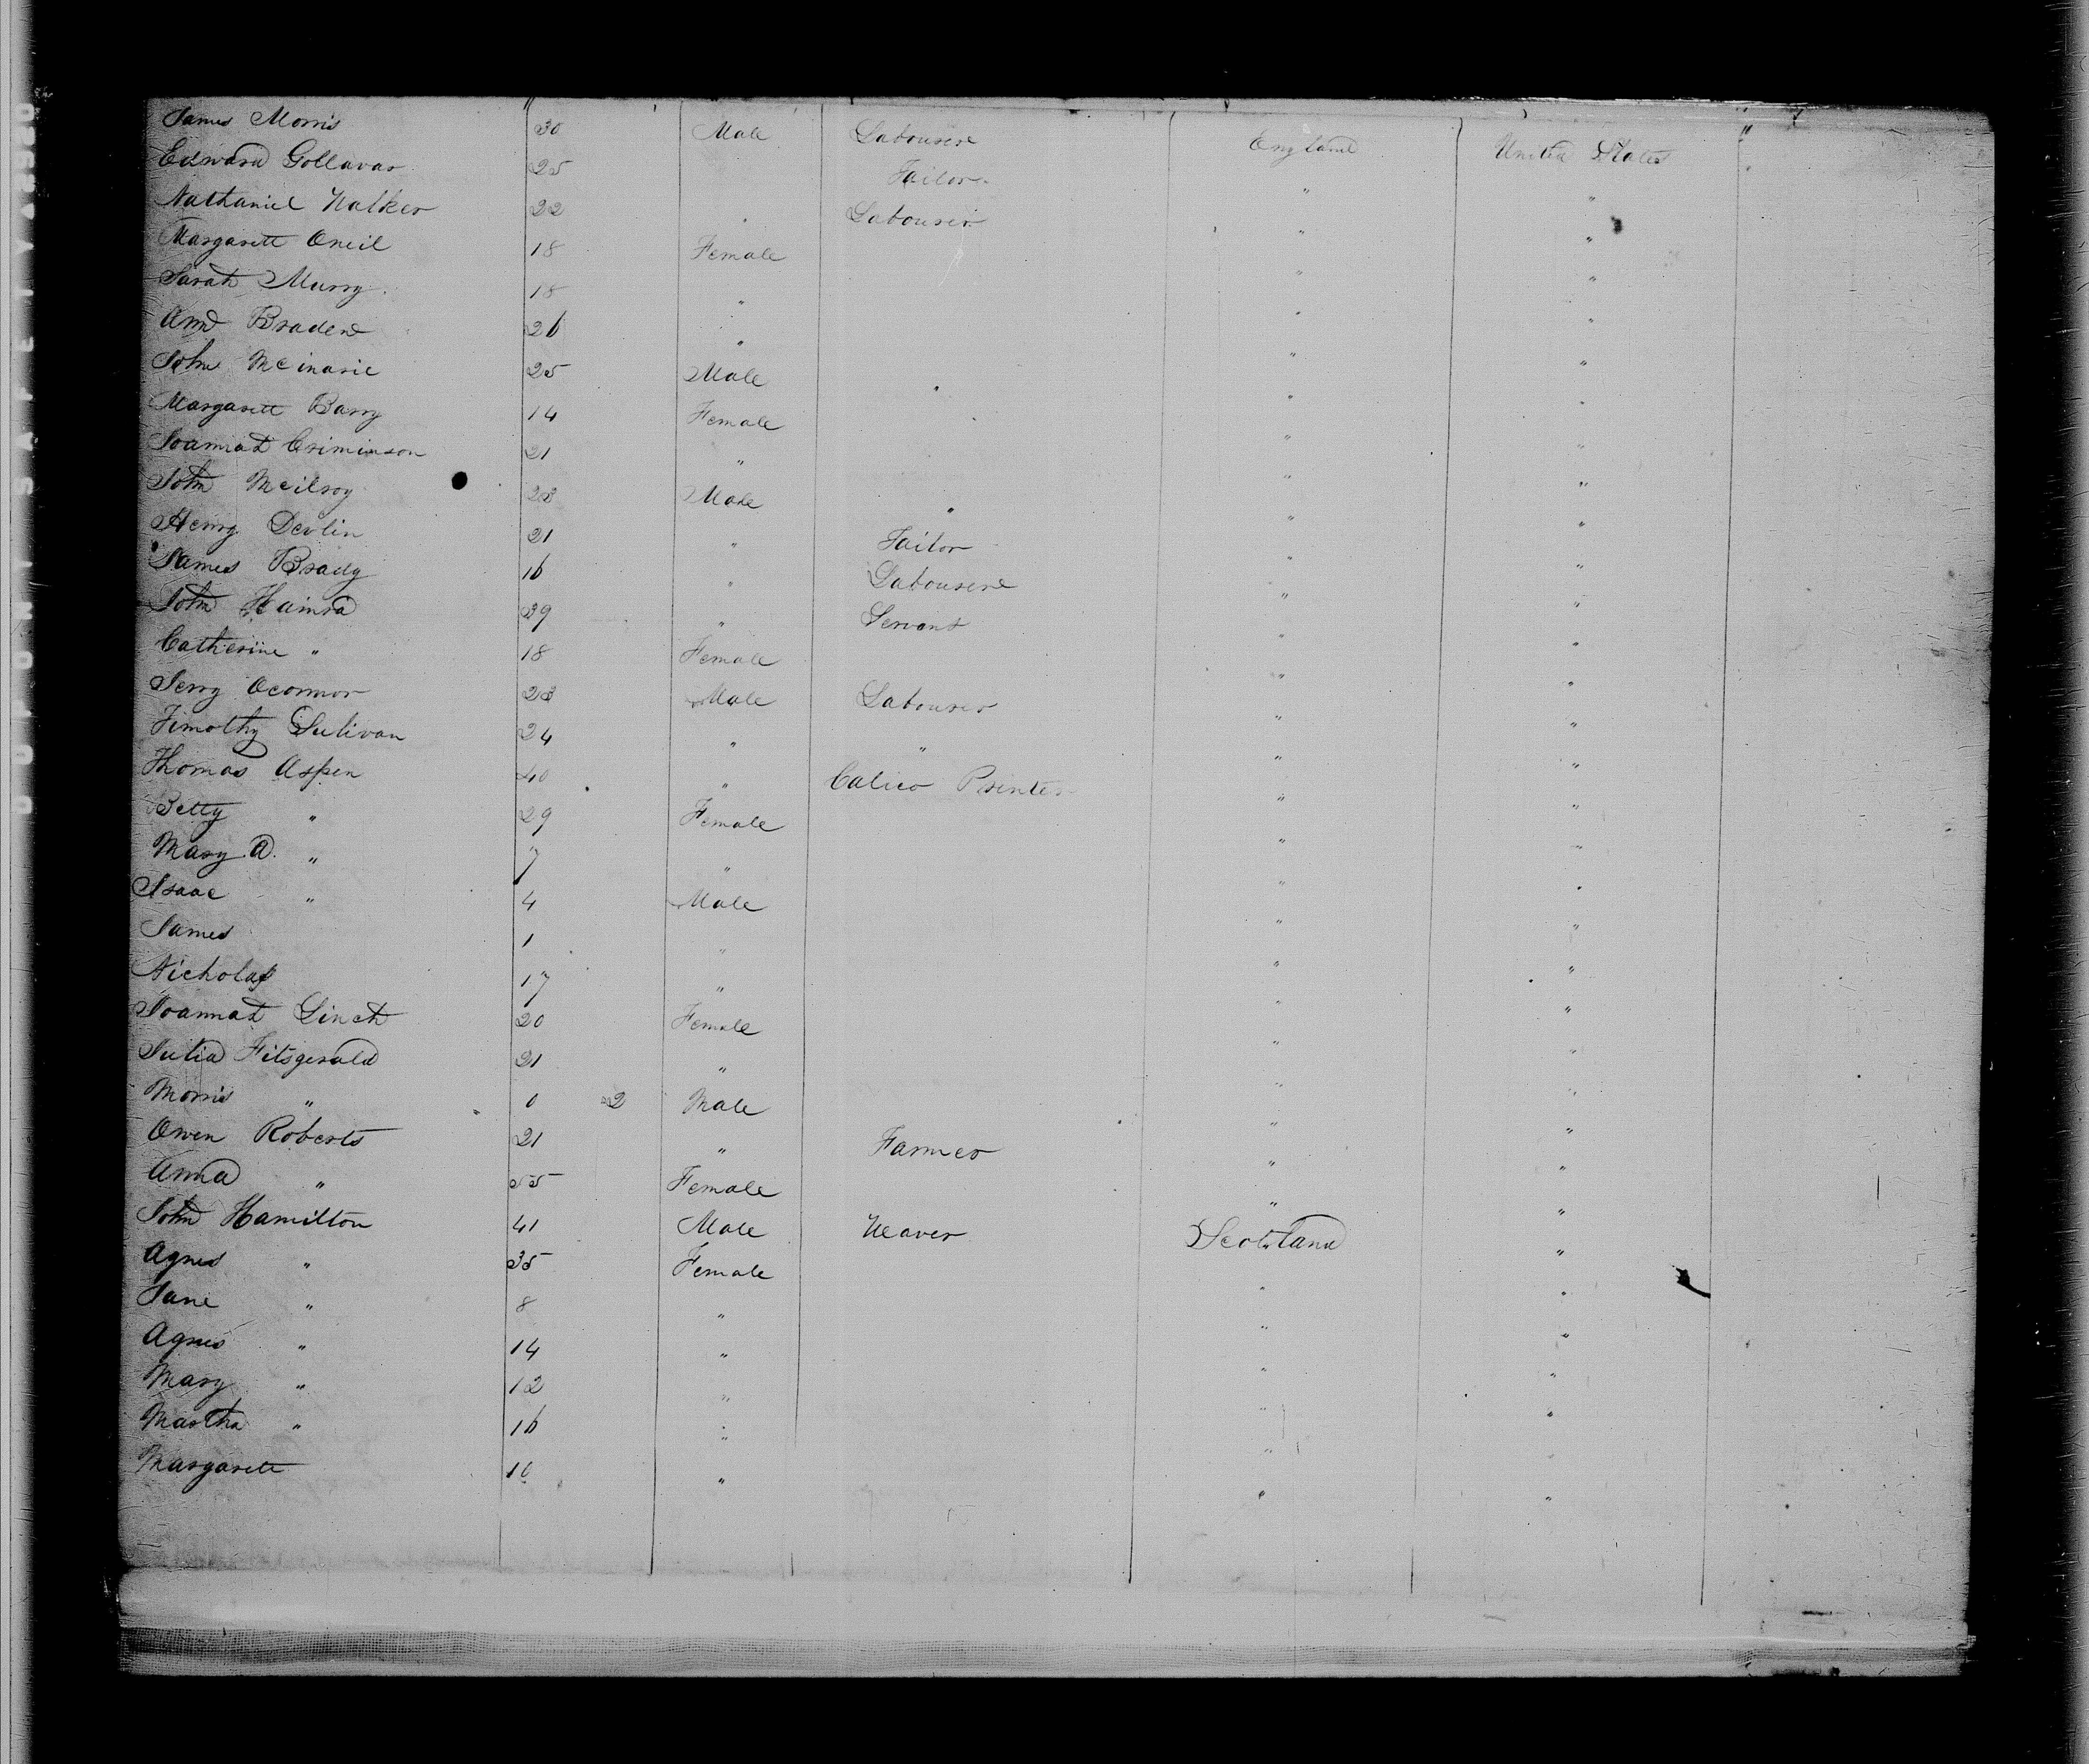 James Morris 30 Male Labourere England United States "
Edward Gollavar 25 Tailor " "
Nathaniel Walker 22 " Labourer " "
Margarett Oneil 18 Female " "
Sarah Murry 18 " " "
Ann Braden 26 " " "
John Mcinarie 25 Male " " "
Margarett Barry 14 Female " "
Joannah Criminson 21 " " "
John Mcilroy 23 Male " " "
Henry Devlin 21 " Tailor " "
James Brady 16 " Labourere " "
John Hainra 39 " Servant " "
Catherine " 18 Female " "
Jerry Oconnor 23 Male Labourer " "
Timothy Sulivan 24 " " " "
Thomas Aspen 40 " Calico Printer " "
Betty " 29 Female " "
Mary A. " 7 " " "
Isaac " 4 Male " "
James 1 " " "
Nicholas 17 " " "
Joannah Linch 20 Female " "
Julia Fitsgerald 21 " " "
Morris " 0 2 Male " "
Owen Roberts 21 " Farmer " "
Anna " 55 Female " "
John Hamilton 41 Male Weaver Scotland "
Agnes " 35 Female " "
Jane " 8 " " "
Agnes " 14 " " "
Mary " 12 " " "
Martha " 16 " " "
Margarett 10 " " "